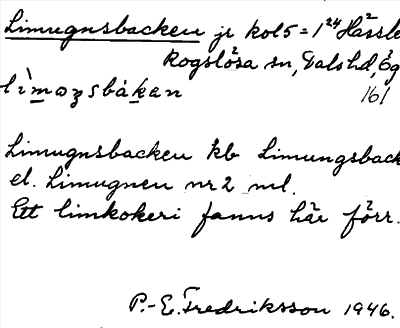 Limugnsbacken jr kol5 = 1²⁴ Hässle
Rogslösa sn, Dals hd, Ög
lìmoɳsbákan 161
Limugnsbacken kb Limungsback
el. Limugnen nr 2 ml.
Ett limkokeri fanns här förr.
P.-E. Fredriksson 1946.